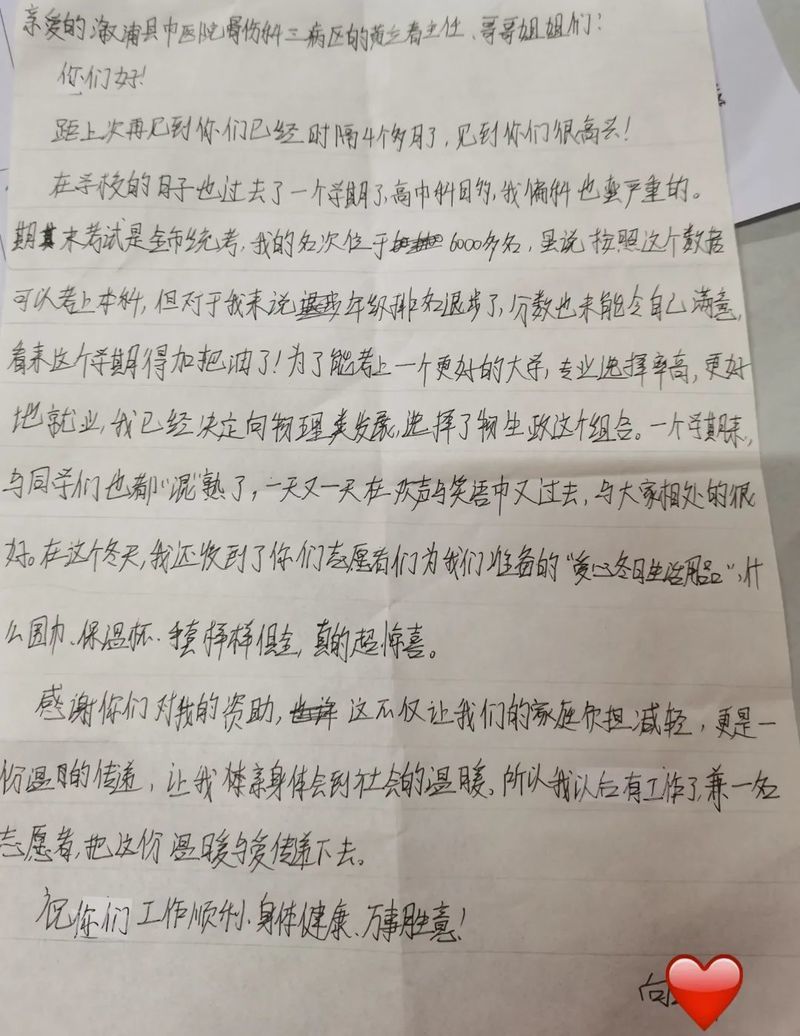 亲爱的溆浦县中医院骨伤科三病区的黄主任、哥哥姐姐们！
你们好！
距上次再见到你们已经时隔4个多月了，见到你们很高兴！
在学校的日子也过去了一个学期了，高中科目多，我偏科也蛮严重的。
期末考试是全市统考，我的名次位于6000多名，虽说按照这个数据
可以考上本科，但对于我来说年级排名退步了，分数也未能令自己满意，
看来这个学期得加把油了！为了能考上一个更好的大学，专业选择率高，更好
地就业，我已经决定向物理类发展，选择了物生政这个组合。一个学期末，
与同学们也都“混”熟了，一天又一天在欢声与笑语中又过去，与大家相处的很
好。在这个冬天，我还收到了你们志愿者们为我们准备的“爱心冬日生活用品”，什
么围巾、保温杯、手套样样俱全，真的超惊喜。
感谢你们对我的资助，这不仅让我们的家庭负担减轻，更是一
份温暖的传递，让我体亲身体会到社会的温暖。所以我以后有工作了，兼一名
志愿者，把这份温暖与爱传递下去。
祝你们工作顺利、身体健康、万事胜意！
向